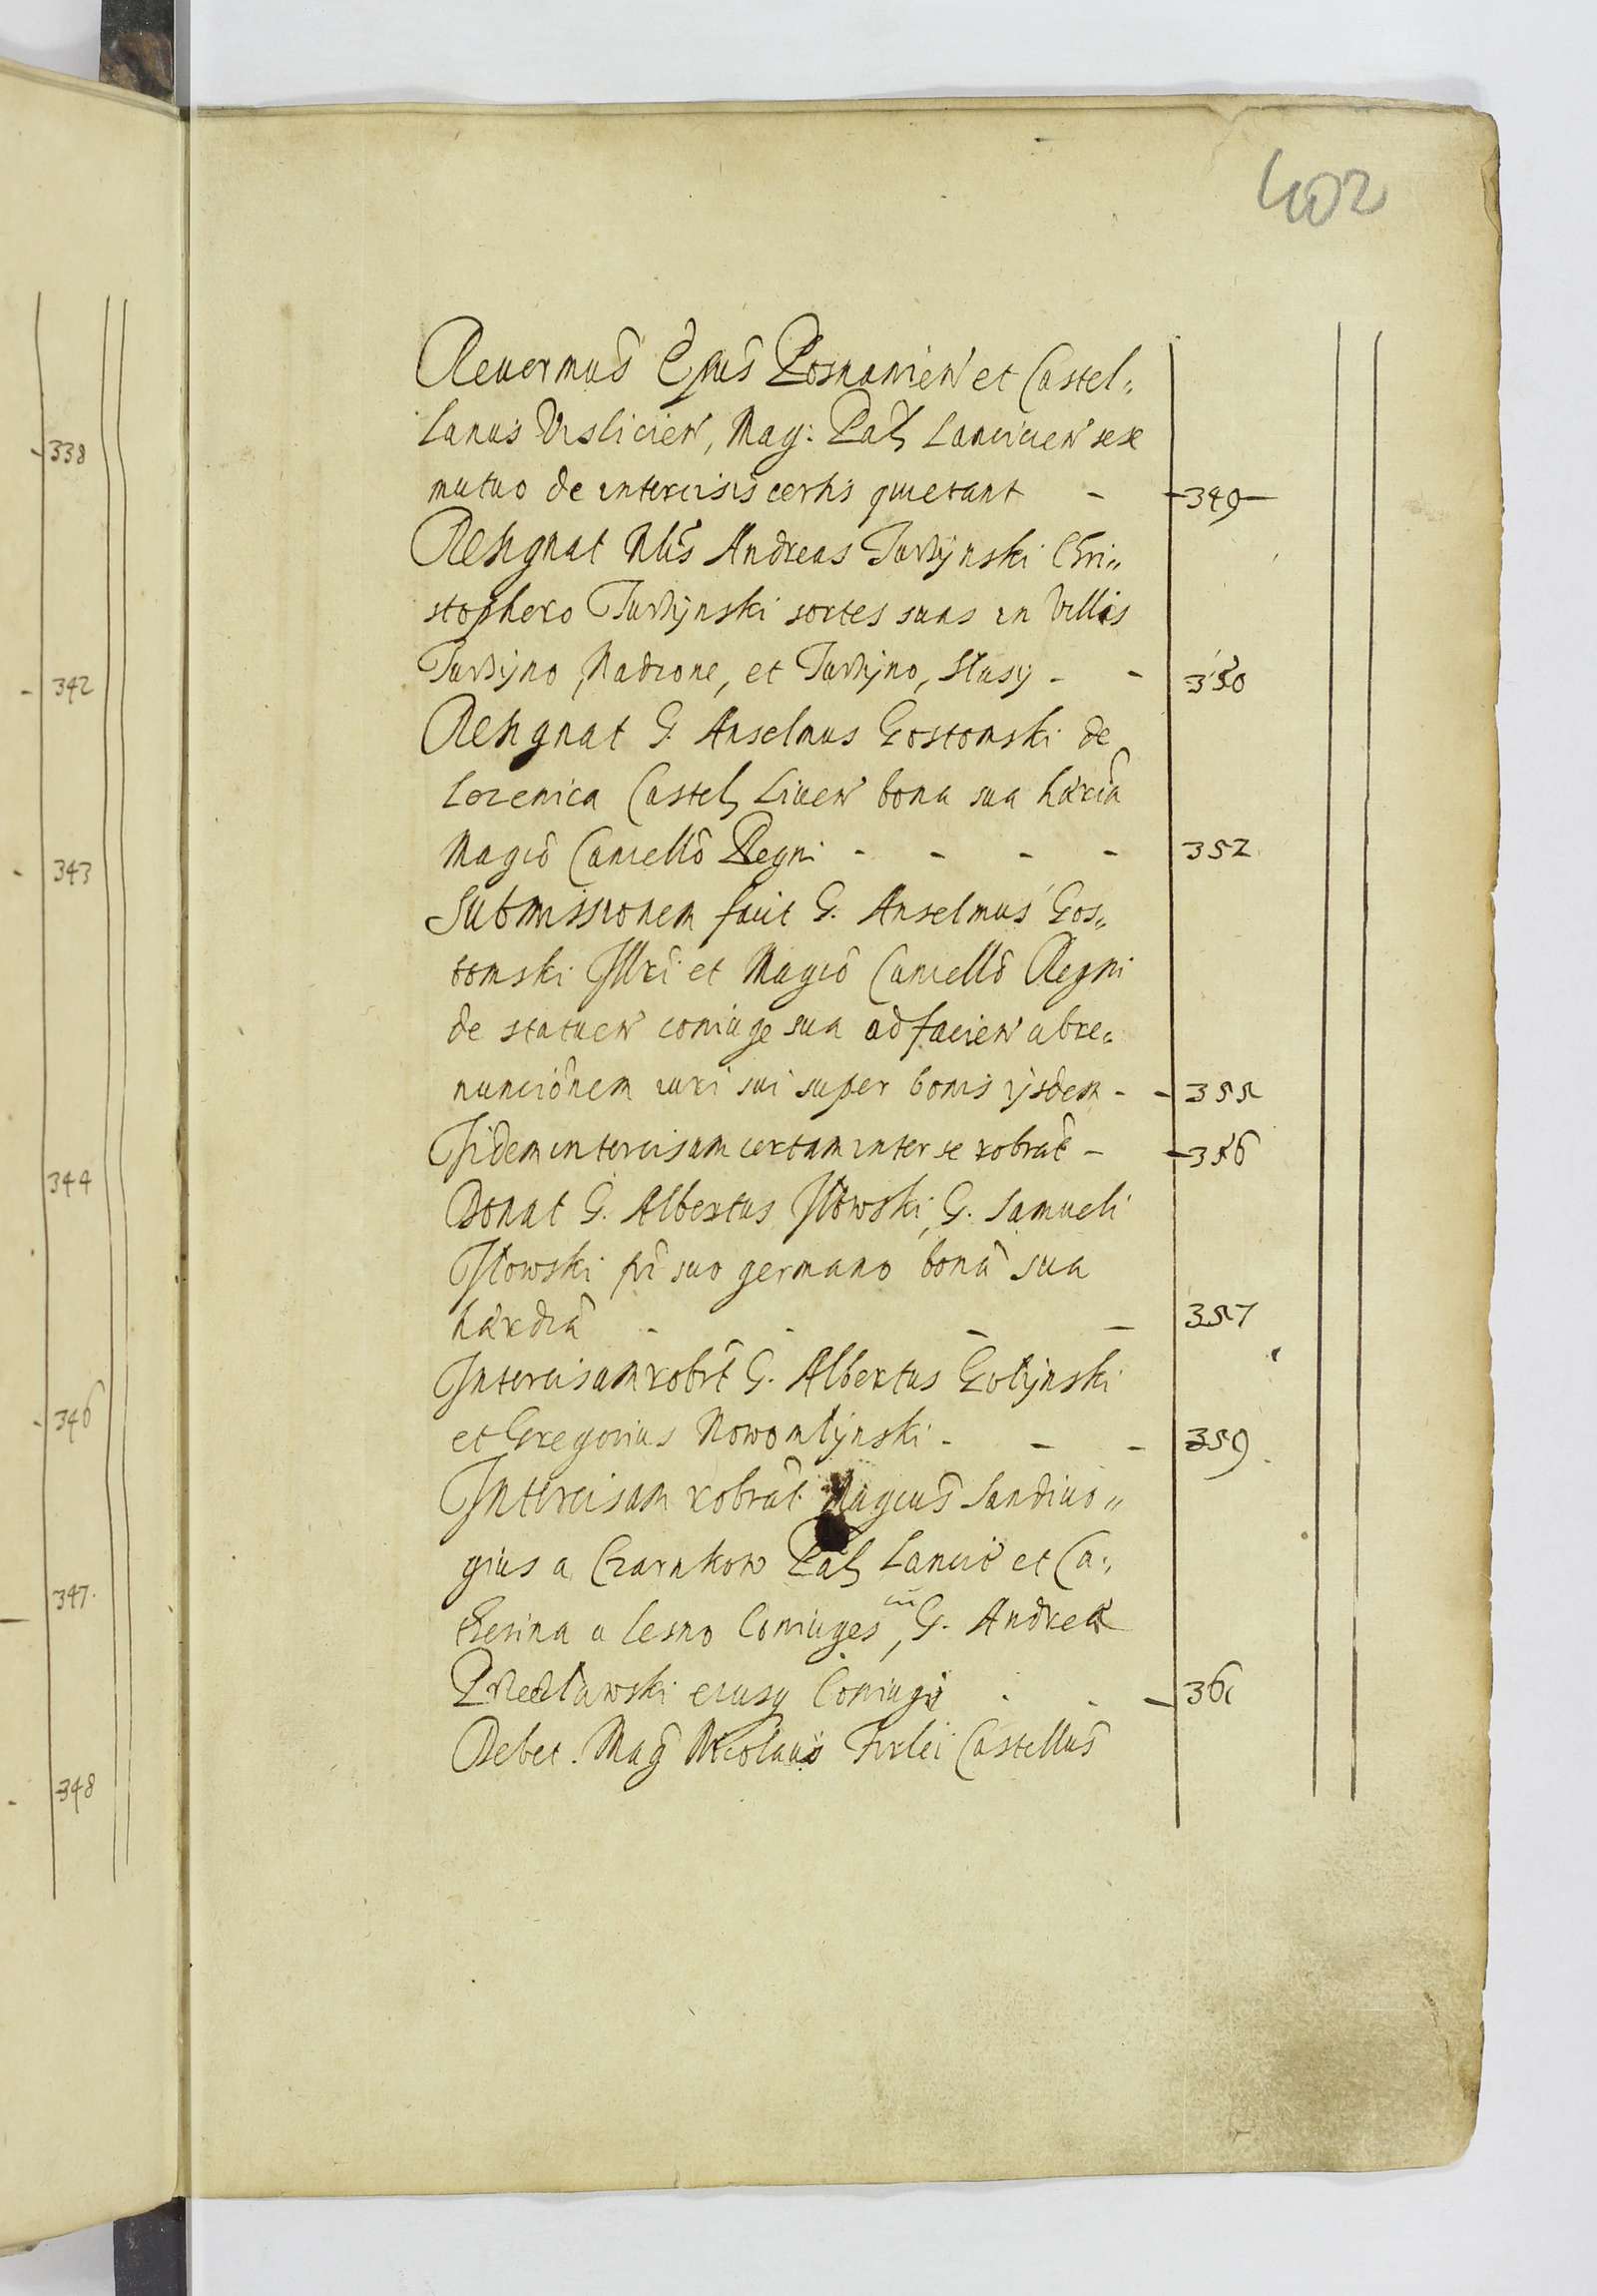 402
338
342
343
344
346
347.
348
Reuermus Epus Posnanien et Castel„
lanus Visliciен, Mag: Pal Lancicien sese
mutuo de intercisis certis quietant - 349
Resignat Nlis Andreas Turskynski Chri„
stophero sortes suas in Villis
et - - 350
Resignat G. Anselmus Gostomski de
Lezenica Castel Liuen bona sua hæria
Magco Cancello Regni - - - - 352
Submissionem facit G. Anselmus Gos„
tomski Illri et Magco Cancello Regni
de statuen coniuge sua ad facien abre„
nuncionem iuri sui super bonis ijsdem - - 355
Ijdem intercisam certam inter se robrat - 356
Donat G. Albertus Iłowski, G. Samueli
Iłowski fri suo germano bona sua
hærdia - - - - 357
Intercisam robrt G. Albertus Golynski
et Gregorius Nowomlynski - - - 359
Intercisam robrat Magcus Sandiuo„
gius a Czarnkow Pal Lancic et Ca„
therina a Lesno Coniuges, cu G. Andrea
Przecławski eiusq Coniuge - - 361
Debet. Mag Nicolaus Firlei Castellus